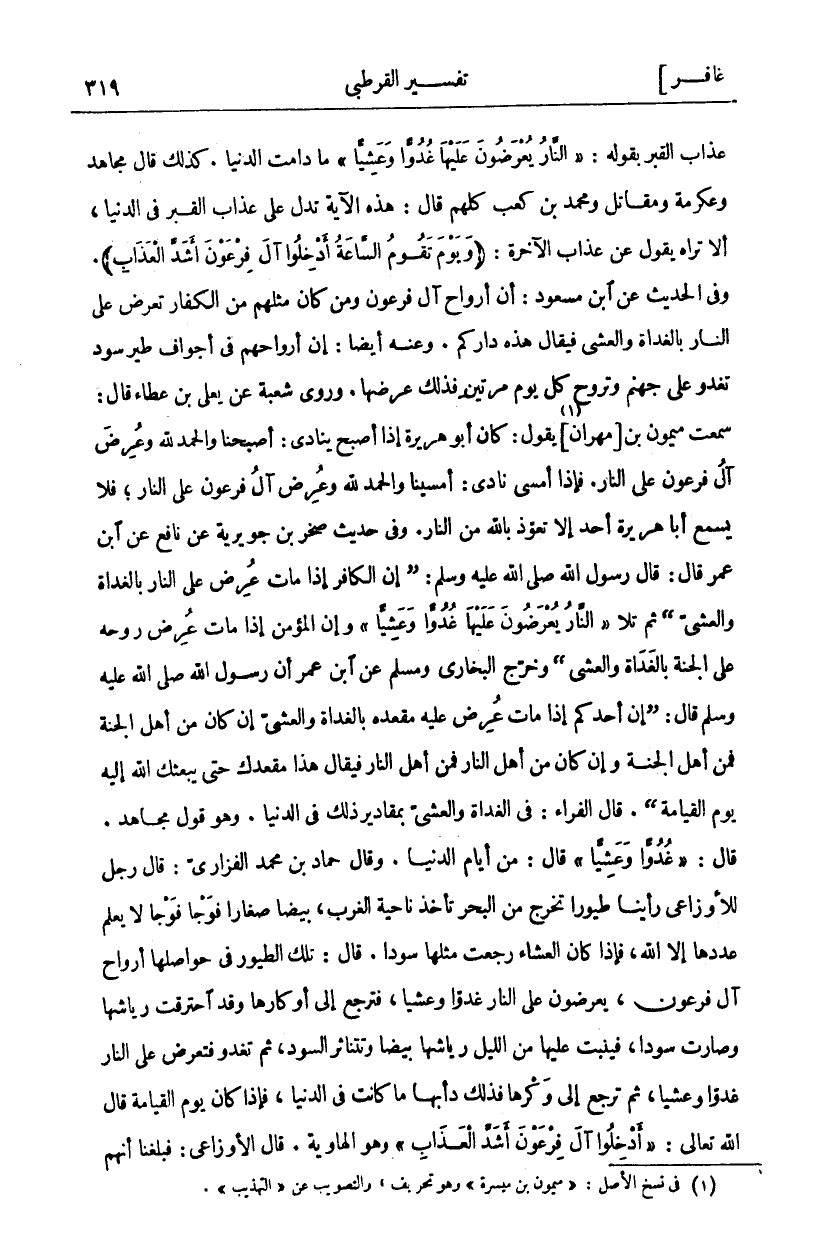 غافر] تفسير القرطبى ٣١٩
عذاب القبر بقوله : « النَّارُ يُعْرَضُونَ عَلَيْهَا غُدُوًّا وَعَشِيًّا » ما دامت الدنيا . كذلك قال مجاهد
وعكرمة ومقاتل ومحمد بن كعب كلهم قال : هذه الآية تدل على عذاب القبر فى الدنيا ،
ألا تراه يقول عن عذاب الآخرة : ﴿وَيَوْمَ تَقُومُ السَّاعَةُ أَدْخِلُوا آلَ فِرْعَوْنَ أَشَدَّ الْعَذَابِ﴾ .
وفى الحديث عن آبن مسعود : أن أرواح آل فرعون ومن كان مثلهم من الكفار تعرض على
النار بالغداة والعشى فيقال هذه داركم . وعنه أيضا : إن أرواحهم فى أجواف طير سود
تغدو على جهنم وتروح كل يوم مرتين فذلك عرضها . وروى شعبة عن يعلى بن عطاء قال :
سمعت ميمون بن [مهران](١) يقول : كان أبو هريرة إذا أصبح ينادى : أصبحنا والحمد لله وعُرِضَ
آلُ فرعون على النار. فإذا أمسى نادى : أمسينا والحمد لله وعُرِض آلُ فرعون على النار ؛ فلا
يسمع أبا هريرة أحد إلا تعوّذ بالله من النار. وفى حديث صخر بن جويرية عن نافع عن آبن
عمر قال : قال رسول الله صلى الله عليه وسلم : ” إن الكافر إذا مات عُرِض على النار بالغداة
والعشىّ “ ثم تلا « النَّارُ يُعْرَضُونَ عَلَيْهَا غُدُوًّا وَعَشِيًّا » وإن المؤمن إذا مات عُرِض روحه
على الجنة بالغَدَاة والعشى “ وخرّج البخارى ومسلم عن آبن عمر أن رسول الله صلى الله عليه
وسلم قال : ”إن أحدكم إذا مات عُرِض عليه مقعده بالغداة والعشىّ إن كان من أهل الجنة
فمن أهل الجنة وإن كان من أهل النار فمن أهل النار فيقال هذا مقعدك حتى يبعثك الله إليه
يوم القيامة “ . قال الفراء : فى الغداة والعشىّ بمقادير ذلك فى الدنيا . وهو قول مجاهد .
قال : « غُدُوًّا وَعَشِيًّا » قال : من أيام الدنيا . وقال حماد بن محمد الفزارىّ : قال رجل
للأوزاعى رأينا طيورا تخرج من البحر تأخذ ناحية الغرب ، بيضا صغارا فوْجا فوْجا لا يعلم
عددها إلا الله ، فإذا كان العشاء رجعت مثلها سودا . قال : تلك الطيور فى حواصلها أرواح
آل فرعون ، يعرضون على النار غدوّا وعشيا ، فترجع إلى أوكارها وقد آحترقت رياشها
وصارت سودا ، فينبت عليها من الليل رياشها بيضا وتتناثر السود ، ثم تغدو فتعرض على النار
غدوّا وعشيا ، ثم ترجع إلى وَكْرها فذلك دأبها ما كانت فى الدنيا ، فإذا كان يوم القيامة قال
الله تعالى : « أَدْخِلُوا آلَ فِرْعَوْنَ أَشَدَّ الْعَذَابِ » وهو الهاوية . قال الأوزاعى : فبلغنا أنهم
(١) فى نسخ الأصل : « ميمون بن ميسرة » وهو تحريف ، والتصويب عن « التهذيب » .